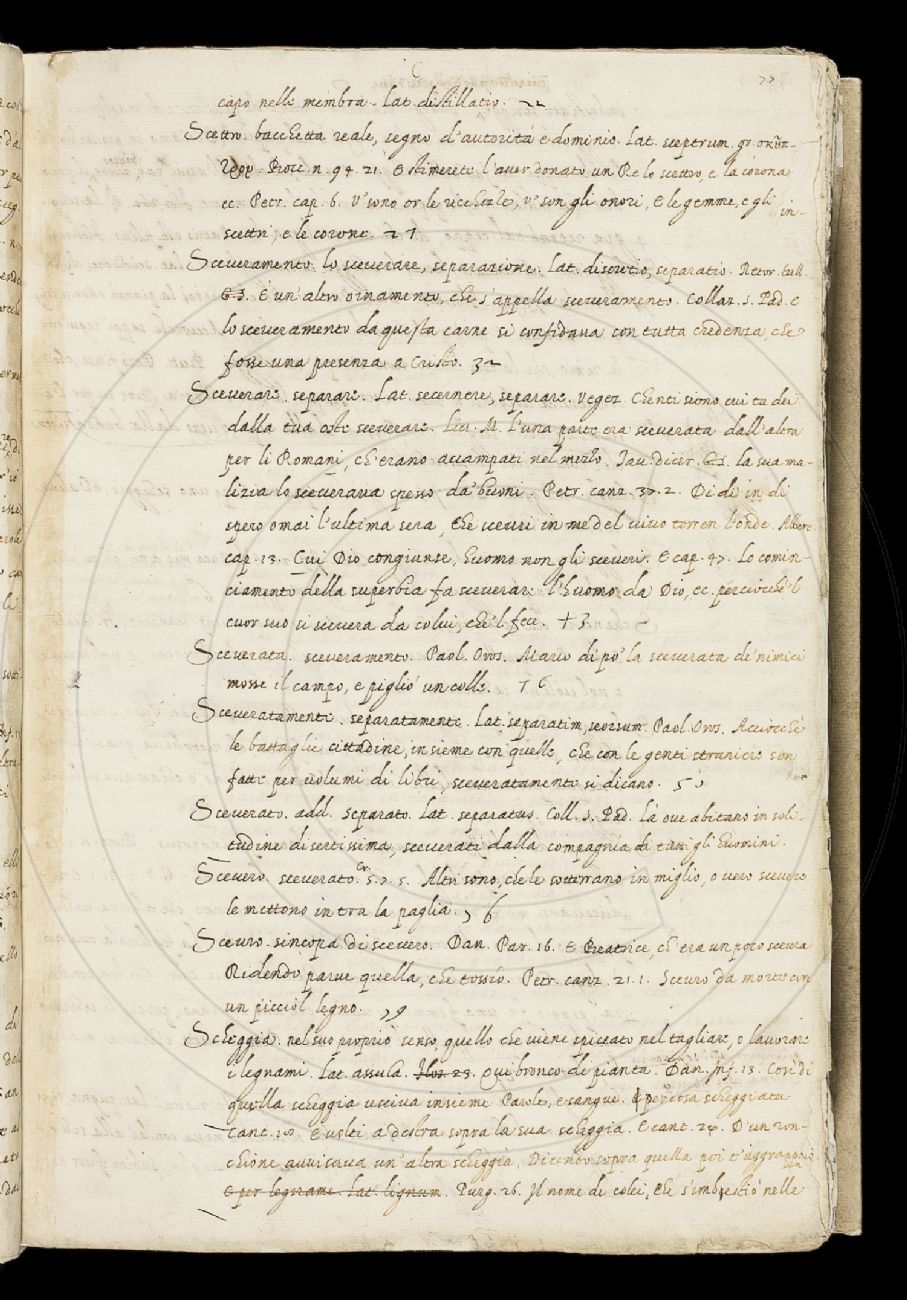 capo nelle membra. Lat. distillatio. 22
Scettro. bacchetta reale, segno d'autorità e dominio. Lat. sceptrum. gr. σκῆπ-
τρον. Bocc. n. 94. 21. E stimerete l'aver donato un Re lo scettro, e la corona
ec. Petr. cap. 6. V' sono or le ricchezze, v' son gli onori, E le gemme, e gli
scettri, e le corone. 21
Sceveramento. lo sceverare, separazione. Lat. discretio, separatio. Retor. tull.
È un' altro ornamento, che s'appella sceveramento. Collaz. S. Pad. e
lo sceveramento da questa carne si confidava con tutta credenza, che
fosse una presenza a Cristo. 32
Sceverare. separare. Lat. secernere, separare. Vegez. Chenti sieno cui tu dei
dalla tua oste sceverare. Liv. M. l'una parte era sceverata dall'altra
per li Romani, ch'erano accampati nel mezzo. Tav. dicer. la sua ma-
lizia lo sceverava spesso da' buoni. Petr. canz. 37. 2. Di dì in dì
spero omai l'ultima sera, Che scevri in me del vivo terren l'onde. Alber.
cap. 13. Cui Dio congiunse, huomo non gli sceveri. E cap. 47. Lo comin-
ciamento della superbia fa sceverare l'huomo da Dio, ec. perciocchè 'l
cuor suo si scevera da colui, che 'l fece. + 3
Sceverata. sceveramento. Paol. Oros. Mario di po' la sceverata de' nimici
mosse il campo, e pigliò un colle. 76
Sceveratamente. separatamente. Lat. separatim, seorsum. Paol. Oros. Acciocchè
le battaglie cittadine, insieme con quelle, che con le genti straniere son
fatte per volumi di libri, sceveratamente si dicano.
Sceverato. add. separato. Lat. separatus. Coll. S. Pad. Là ove abitano in soli-
tudine disertissima, sceverati dalla compagnia di tutti gli huomini.
Scevero. sceverato. Cr. 5. 7. 5. Altri sono, che le sotterrano in miglio, o vero scevero
le mettono intra la paglia. 76
Scevro. sincopa di scevero. Dan. Par. 16. E Beatrice, ch'era un poco scevra
Ridendo parve quella, che tossio. Petr. canz. 21. 1. Scevro da morte con
un picciol legno. 79
Scheggia. nel suo proprio senso, quello che viene spiccato nel tagliare, o lavorare
i legnami. Lat. assula. Qui bronco di pianta. Dan. Inf. 13. Così di
quella scheggia usciva insieme Parole, e sangue. per cosa scheggiata
cant. 18. E volti a destra sopra la sua scheggia. E cant. 24. D'un ron-
chione avvisava un'altra scheggia, Dicendo sopra quella poi t'aggrappa
E per legname. Lat. lignum. Purg. 26. Il nome di colei, che s'imbestiò nelle